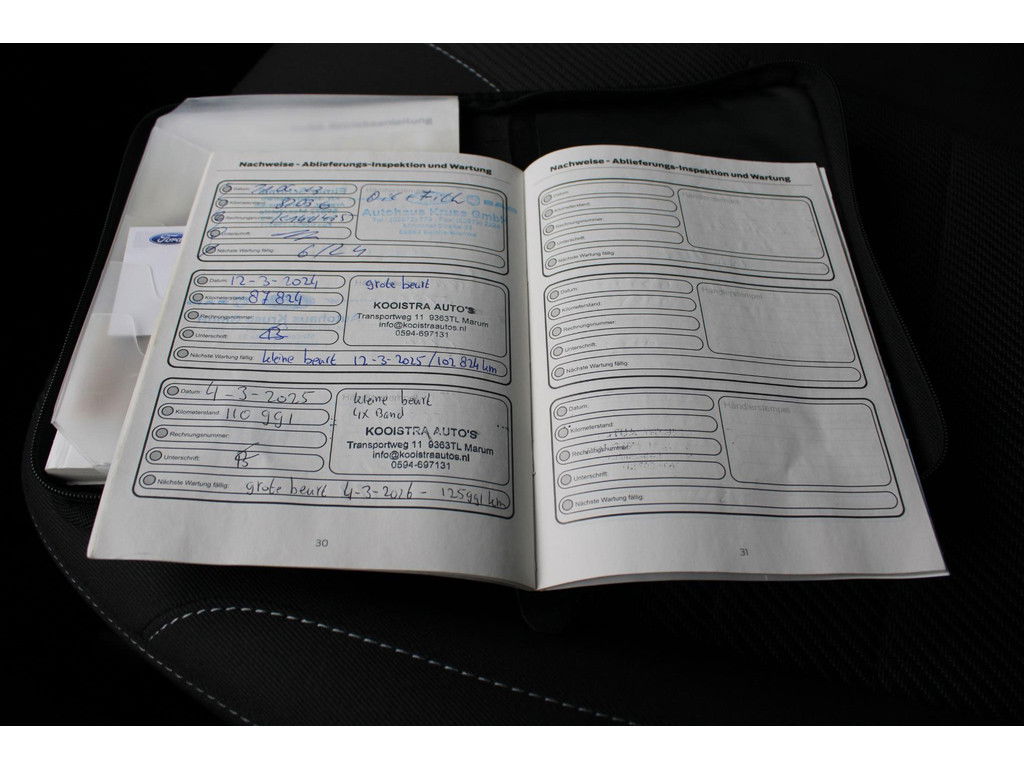 Nachweise - Ablieferungs-Inspektion und Wartung
Datum:
Kilometerstand:
Rechnungsnummer:
Unterschrift:
Nächste Wartung fällig: 6/24
Autohaus Kruse GmbH
Datum: 12-3-2024
Kilometerstand: 87824
Rechnungsnummer:
Unterschrift:
grote beurt
KOOISTRA AUTO'S
Transportweg 11 9363TL Marum
info@kooistraautos.nl
0594-697131
Nächste Wartung fällig: kleine beurt 12-3-2025/102824 km
Datum: 4-3-2025
Kilometerstand: 110991
Rechnungsnummer:
Unterschrift:
kleine beurt
4x Band
KOOISTRA AUTO'S
Transportweg 11 9363TL Marum
info@kooistraautos.nl
0594-697131
Nächste Wartung fällig: grote beurt 4-3-2026 - 125991 km
30
Ford
Nachweise - Ablieferungs-Inspektion und Wartung
Datum:
Kilometerstand:
Rechnungsnummer:
Unterschrift:
Nächste Wartung fällig:
Händlerstempel
Datum:
Kilometerstand:
Rechnungsnummer:
Unterschrift:
Nächste Wartung fällig:
Händlerstempel
Datum:
Kilometerstand:
Rechnungsnummer:
Unterschrift:
Nächste Wartung fällig:
Händlerstempel
31